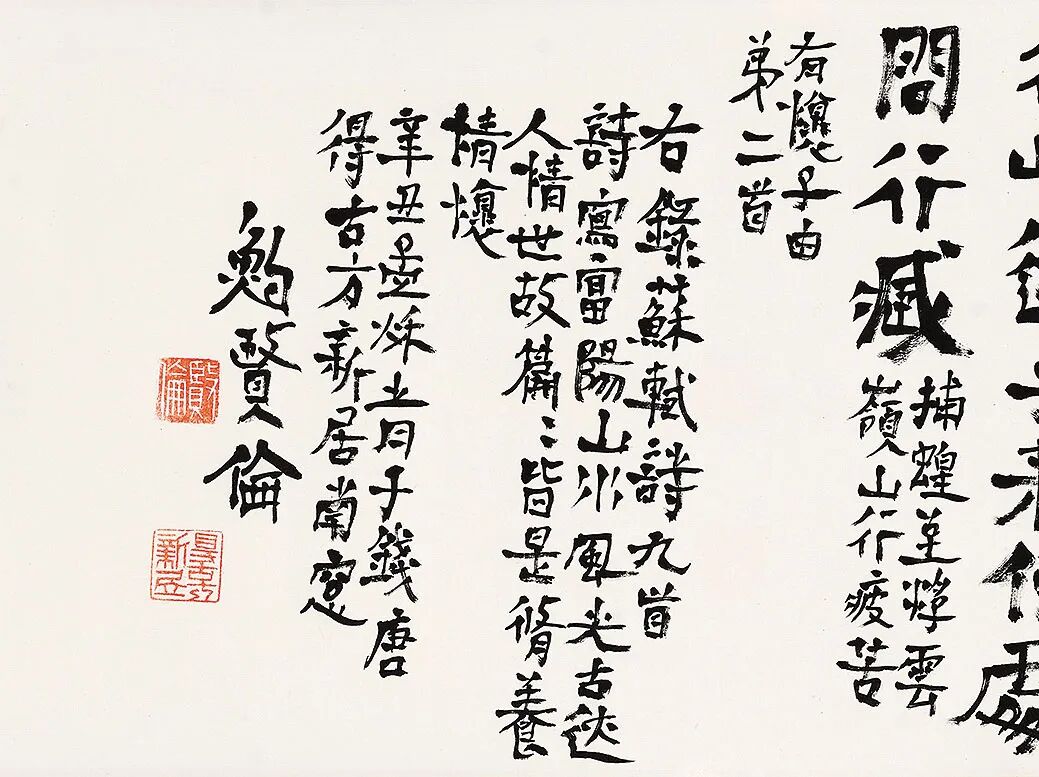 從此逝子來何處
問行藏
捕蝗至浮雲
嶺山行疲苦
有懷子由
弟二首
右錄蘇軾詩九首
詩寫富陽山水風光古迹
人情世故篇〻皆是脩養
情懷
辛丑孟秋上月于錢唐
得古方新居南窗
賢倫